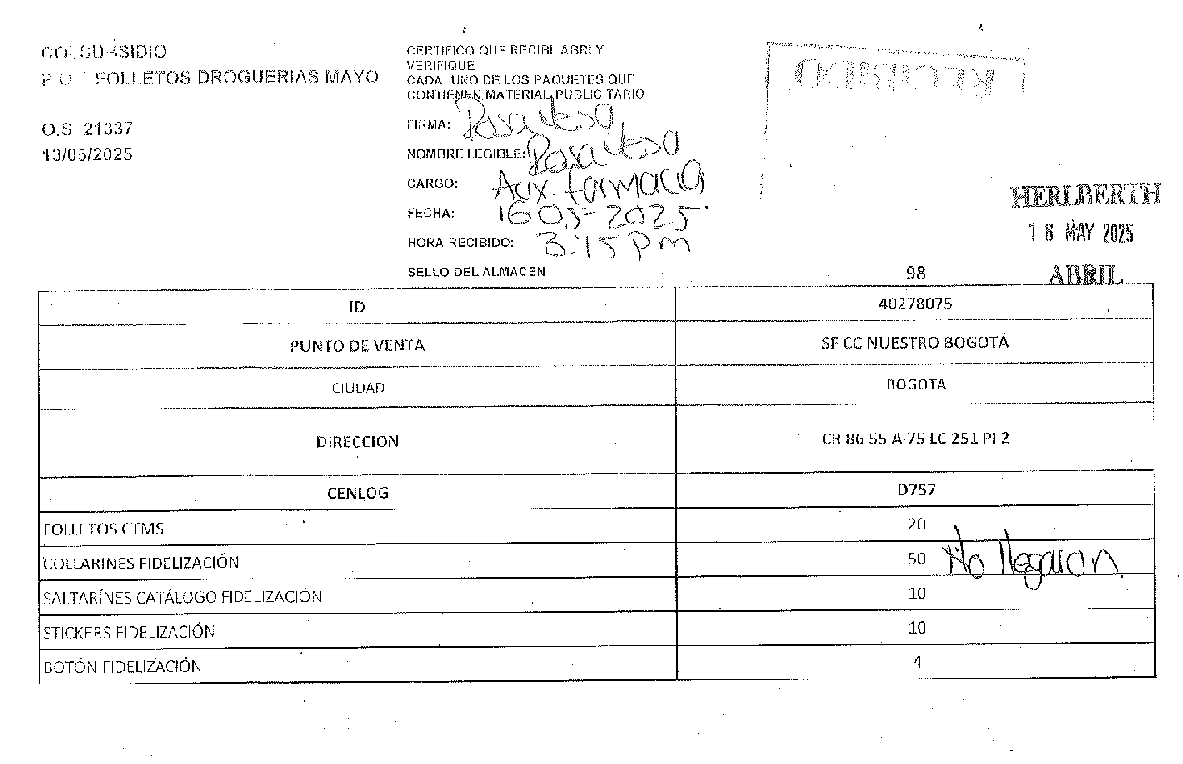 COLSUBSIDIO
FOLLETOS DROGUERIAS MAYO
O.S 21337
13/05/2025
CERTIFICO QUE RECIBI ABRI Y
VERIFIQUE
CADA UNO DE LOS PAQUETES QUE
CONTIENEN MATERIAL PUBLICITARIO
FIRMA:
NOMBRE LEGIBLE:
CARGO: Aux. farmacia
FECHA: 16 05-2025
HORA RECIBIDO: 3:15 pm
SELLO DEL ALMACEN
RECIBIDO
HERLBERTH
16 MAY 2025
ABRIL
98
ID 40278075
PUNTO DE VENTA SF CC NUESTRO BOGOTÁ
CIUDAD BOGOTA
DIRECCION CR 86 55 A-75 LC 251 PI 2
CENLOG D757
FOLLETOS CTMS 20
COLLARINES FIDELIZACIÓN 50 No llegaron
SALTARÍNES CATÁLOGO FIDELIZACIÓN 10
STICKERS FIDELIZACIÓN 10
BOTÓN FIDELIZACIÓN 4